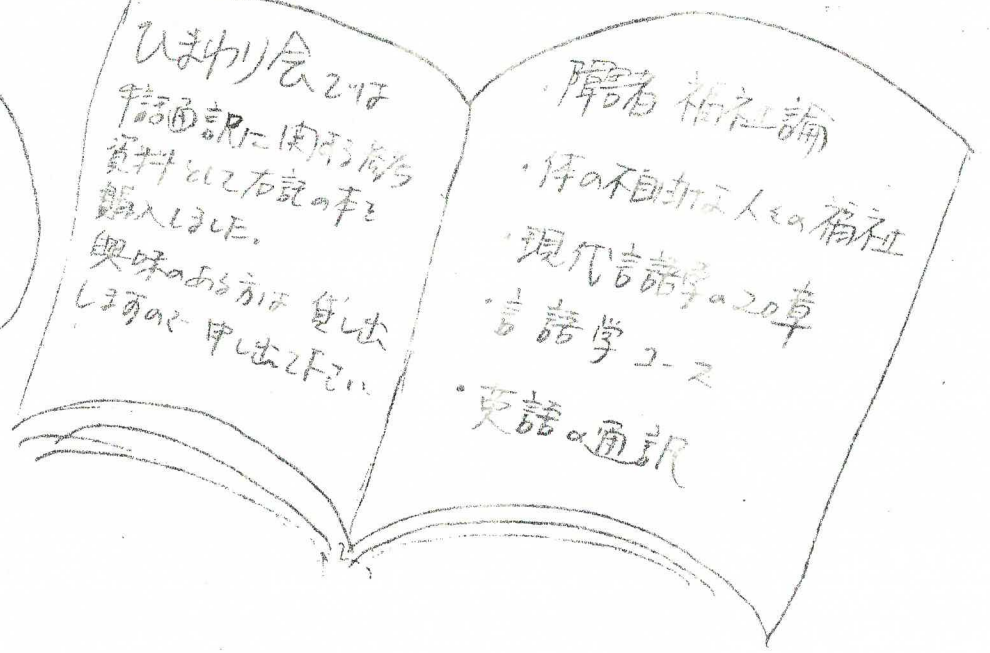 ひまわり会では
手話通訳に関する
資料として右記の本を
購入しました。
興味のある方は 貸し出
しますので 申し出て下さい
・障害者 福祉論
・体の不自由な人々の福祉
・現代言語学の20章
・言語学コース
・英語の通訳